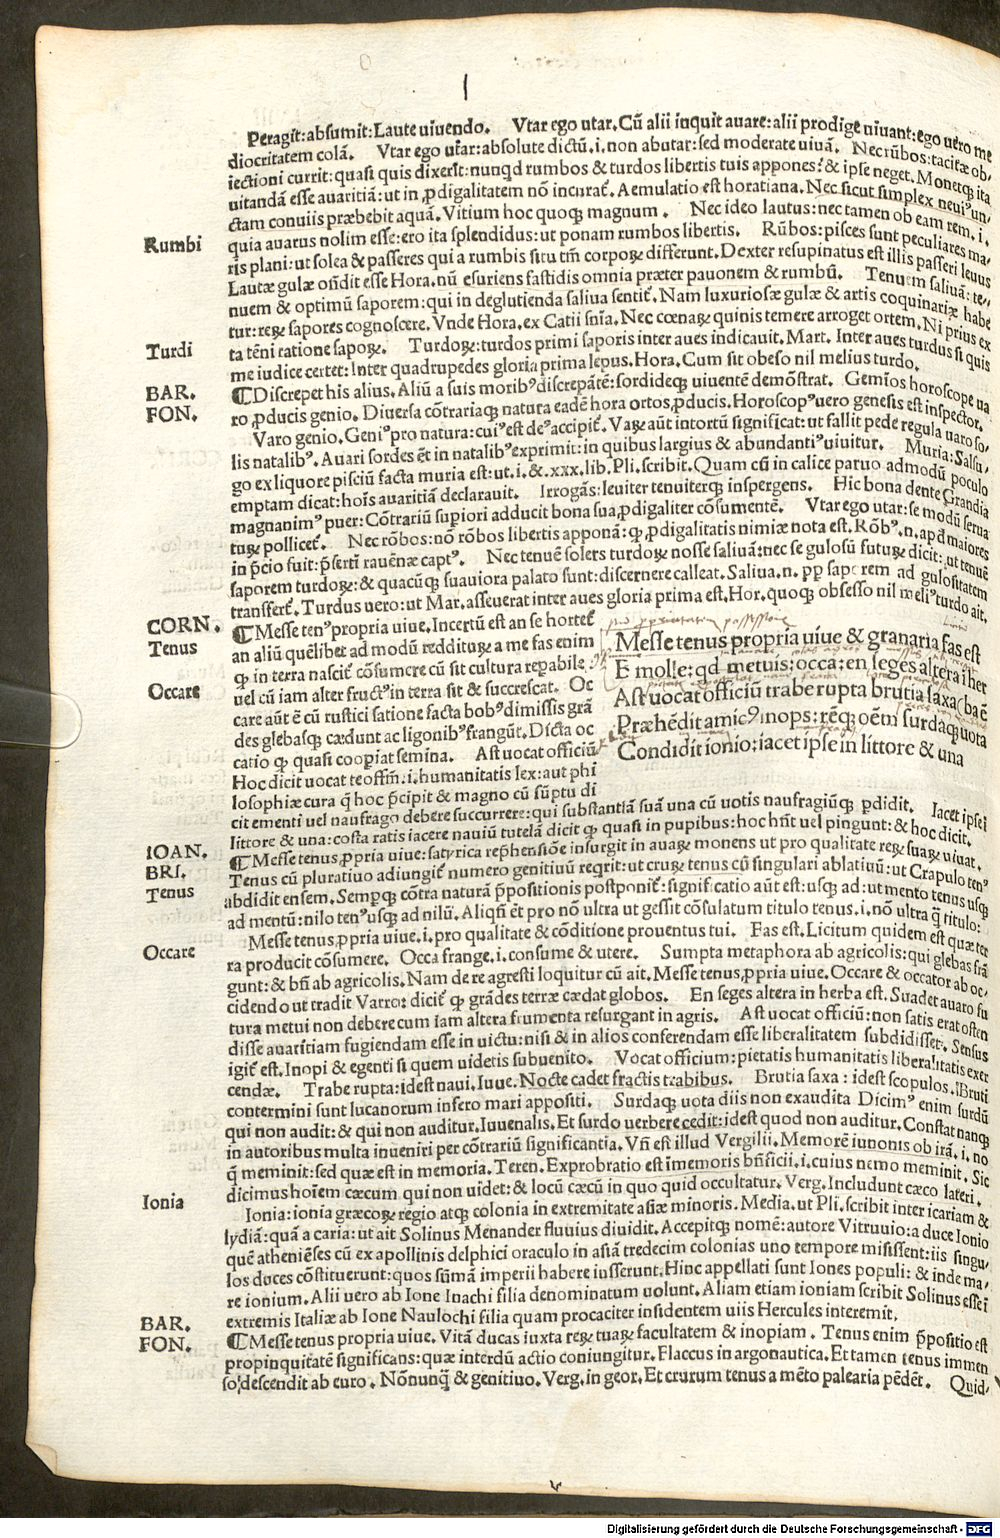 Peragit: absumit: Laute uiuendo. Vtar ego utar. Cũ alii inquit auare: alii prodige uiuant: ego uero me
diocritatem colã. Vtar ego utar: absolute dictũ. i. non abutar: sed moderate uiuã. Nec rũbos: tacitæ ob/
iectioni currit: quasi quis dixerit: nunqd rumbos & turdos libertis tuis appones? & ipse neget. Monetqꝫ ita
uitandã esse auaritiã: ut in ꝓdigalitatem nõ incurat. Aemulatio est horatiana. Nec sicut simplex neuiꝰ un/
ctam conuiis præbebit aquã. Vitium hoc quoqꝫ magnum. Nec ideo lautus: nec tamen ob eam rem. i.
Rumbi
quia auarus nolim esse: ero ita splendidus: ut ponam rumbos libertis. Rũbos: pisces sunt peculiares ma/
ris plani: ut solea & passeres qui a rumbis situ tm̃ corpoꝝ differunt. Dexter resupinatus est illis passeri leuus
Lautæ gulæ oñdit esse Hora. nũ esuriens fastidis omnia præter pauonem & rumbũ. Tenuem saliuã: te/
nuem & optimũ saporem: qui in deglutienda saliua sentit̃. Nam luxuriosæ gulæ & artis coquinariæ habe
tur: reꝝ sapores cognoscere. Vnde Hora. ex Catii sñia. Nec cœnaꝝ quinis temere arroget ortem. Ni prius ex
Turdi
ta tẽni ratione sapoꝝ. Turdoꝝ: turdos primi saporis inter aues indicauit. Mart. Inter aues turdus si quis
me iudice certet: Inter quadrupedes gloria prima lepus. Hora. Cum sit obeso nil melius turdo.
BAR.
FON.
¶ Discrepet his alius. Aliũ a suis moribꝰ discrepãtẽ: sordideqꝫ uiuentẽ demõstrat. Gemĩos horoscope ua
ro ꝓducis genio. Diuersa cõtrariaqꝫ natura eadẽ hora ortos ꝓducis. Horoscopꝰ uero genesis est inspector.
Varo genio. Geniꝰ pro natura: cuiꝰ est deꝰ accipit̃. Vaꝝ aũt intortũ significat: ut fallit pede regula uaro so/
lis natalibꝰ. Auari sordes ẽt in natalibꝰ exprimit: in quibus largius & abundantiꝰ uiuitur. Muria: Salsu/
go ex liquore pisciũ facta muria est: ut. i. &. xxx. lib. Pli. scribit. Quam cũ in calice paruo admodũ poculo
emptam dicat: hoĩs auaritiã declarauit. Irrogãs: leuiter tenuiterqꝫ inspergens. Hic bona dente Grandia
magnanimꝰ puer: Cõtrariũ supiori adducit bona sua ꝓdigaliter cõsumentẽ. Vtar ego utar: se modũ serua
tuꝝ pollicet̃. Nec rõbos: nõ rõbos libertis apponã: qꝫ ꝓdigalitatis nimiæ nota est. Rõbꝰ. n. apd maiores
in p̃cio fuit: p̃serti rauẽnæ captꝰ. Nec tenuẽ solers turdoꝝ nosse saliuã: nec se gulosũ futuꝝ dicit: ut tenuẽ
saporem turdoꝝ: & quacũqꝫ suauiora palato sunt: discernere calleat. Saliua. n. pp saporem ad gulositatem
transfert̃. Turdus uero: ut Mar. asseuerat inter aues gloria prima est. Hor. quoqꝫ obsesso nil meliꝰ turdo ait.
CORN.
Tenus
¶ Messe tenꝰ propria uiue. Incertũ est an se hortet̃
an aliũ quẽlibet ad modũ reddituꝝ a me fas enim
qꝫ in terra nascit̃ cõsumere cũ sit cultura repabile
Occare
uel cũ iam alter fructꝰ in terra sit & succrescat. Oc
care aũt ẽ cũ rustici satione facta bobꝰ dimissis grã
des glebasqꝫ cædunt ac ligonibꝰ frangũt. Dicta oc
catio qꝫ quasi coopiat semina. Ast uocat officiũ
Hoc dicit uocat te offm̃. i. humanitatis lex: aut phi
losophiæ cura q̃ hoc p̃cipit & magno cũ sũptu di
Messe tenus propria uiue & granaria fas est
E molle: qd metuis: occa: en seges altera i her
Ast uocat officiũ trabe rupta brutia saxa ba ẽ
Præhẽdit amicꝰ inops: rẽqꝫ oẽm surdaqꝫ uota
Condidit ionio: iacet ipse in littore & una
cit ementi uel naufrago debere succurrere: qui substantiã suã una cũ uotis naufragiũqꝫ pdidit. Iacet ipse i
littore & una: costa ratis iacere nauiũ tutelã dicit qꝫ quasi in pupibus: hoc hñt uel pingunt: & hoc dicit.
IOAN.
BRI.
Tenus
¶ Messe tenus ꝓpria uiue: satyrica rep̃hensiõe insurgit in auaꝝ monens ut pro qualitate reꝝ suaꝝ uiuat.
Tenus cũ pluratiuo adiungit̃ numero genitiuũ reqrit: ut cruꝝ tenus cũ singulari ablatiuũ: ut Crapulo tenꝰ
abdidit ensem. Semperqꝫ cõtra naturã p̃positionis postponit̃: significatio aũt est: usqꝫ ad: ut mento tenus usqꝫ
ad mentũ: nilo tenꝰ usqꝫ ad nilũ. Aliqñ ẽt pro nõ ultra ut gessit cõsulatum titulo tenus. i. nõ ultra q̃ titulo:
Messe tenus ꝓpria uiue. i. pro qualitate & cõditione prouentus tui. Fas est. Licitum quidem est quæ ter
Occare
ra producit cõsumere. Occa frange. i. consume & utere. Sumpta metaphora ab agricolis: qui glebas frã
gunt: & bñ ab agricolis. Nam de re agresti loquitur cũ ait. Messe tenus ꝓpria uiue. Occare & occator ab oc/
cidendo ut tradit Varro: dicit̃ qꝫ grãdes terræ cædat globos. En seges altera in herba est. Suadet auaro fu
tura metui non debere cum iam altera frumenta resurgant in agris. Ast uocat officiũ: non satis erat osten
disse auaritiam fugiendam esse in uictu: nisi & in alios conferendam esse liberalitatem subdidisset. Sensus
igit̃ est. Inopi & egenti si quem uidetis subuenito. Vocat officium: pietatis humanitatis liberalitatis exer
cendæ. Trabe rupta: idest naui. Iuue. Nocte cadet fractis trabibus. Brutia saxa: idest scopulos. Bruti
contermini sunt lucanorum infero mari appositi. Surdaqꝫ uota diis non exaudita Dicimꝰ enim surdũ
qui non audit: & qui non auditur. Iuuenalis. Et surdo uerbere cedit: idest quod non auditur. Constat nanqꝫ
in autoribus multa inueniri per cõtrariũ significantia. Vñ est illud Vergilii. Memorẽ iunonis ob irã. i. no
q̃ meminit: sed quæ est in memoria. Teren. Exprobratio est ĩmemoris bñficii. i. cuius nemo meminit. Sic
dicimus hoĩem cæcum qui non uidet: & locũ cæcũ in quo quid occultatur. Verg. Includunt cæco lateri.
Ionia
Ionia: ionia græcoꝝ regio atqꝫ colonia in extremitate asiæ minoris. Media. ut Pli. scribit inter icariam &
lydiã: quã a caria: ut ait Solinus Menander fluuius diuidit. Accepitqꝫ nomẽ: autore Vitruuio: a duce Ionio
quẽ atheniẽses cũ ex apollinis delphici oraculo in asiã tredecim colonias uno tempore misissent: iis singu/
los duces cõstituerunt: quos sũmã imperii habere iusserunt. Hinc appellati sunt Iones populi: & inde ma/
re ionium. Alii uero ab Ione Inachi filia denominatum uolunt. Aliam etiam ioniam scribit Solinus esse i
extremis Italiæ ab Ione Naulochi filia quam procaciter insidentem uiis Hercules interemit.
BAR.
FON.
¶ Messe tenus propria uiue. Vitã ducas iuxta reꝝ tuaꝝ facultatem & inopiam. Tenus enim p̃positio est
propinquitatẽ significans: quæ interdũ actio coniungitur. Flaccus in argonautica. Et tamen tenus immen
so descendit ab euro. Nõnunqꝫ & genitiuo. Verg. in geor. Et crurum tenus a mẽto palearia pẽdẽt. Quid/
Digitalisierung gefördert durch die Deutsche Forschungsgemeinschaft - DFG